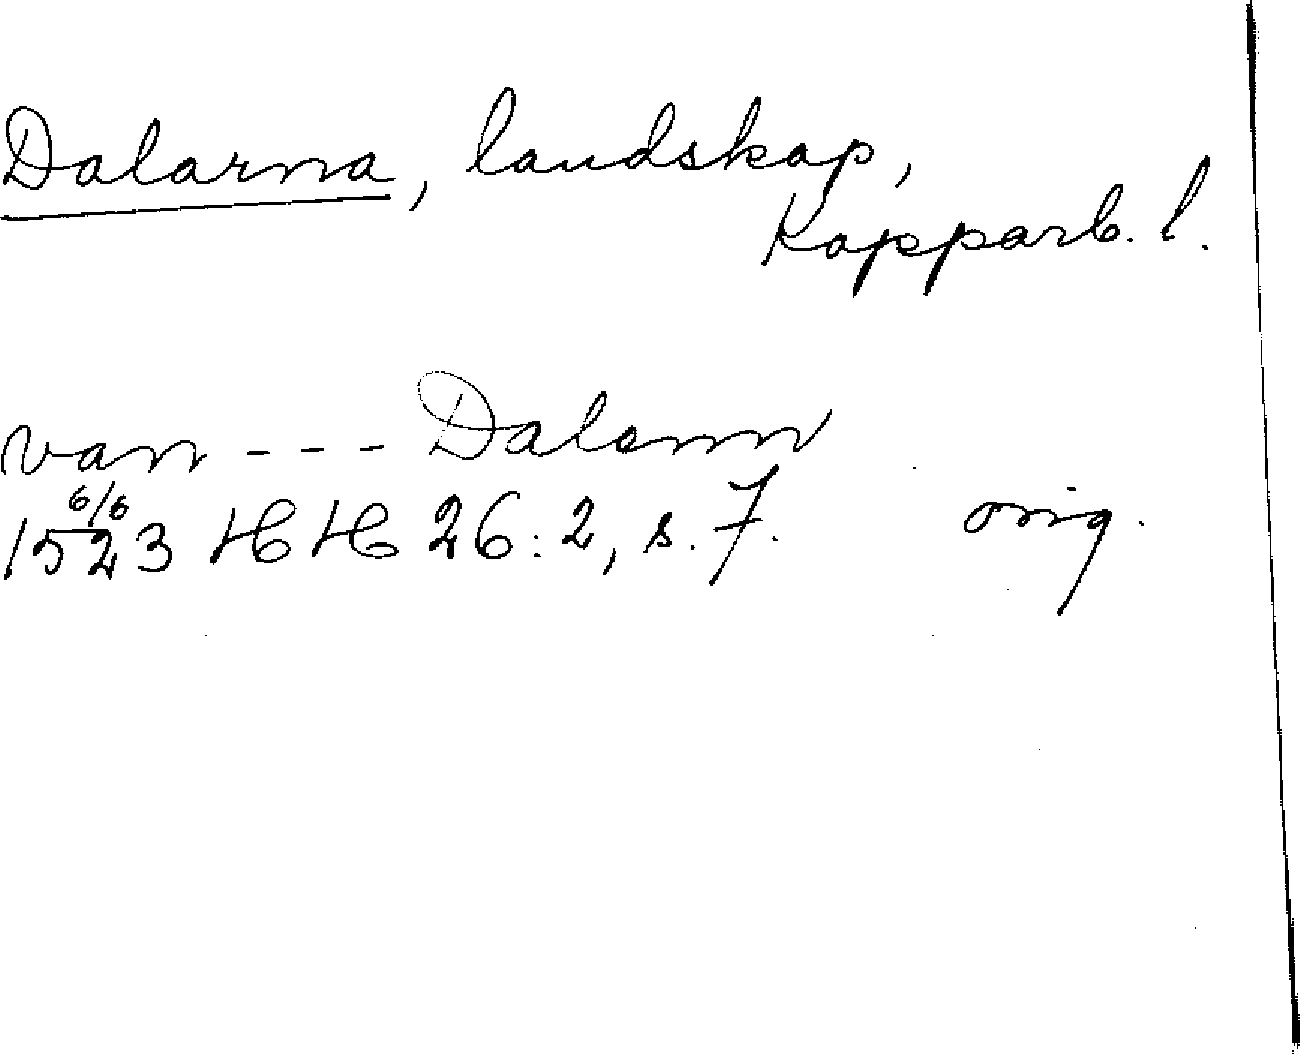 Dalarna, landskap,
Kopparb. l.
van --- Dalenn
6/6
1523 HH 26:2, s. 7. orig.